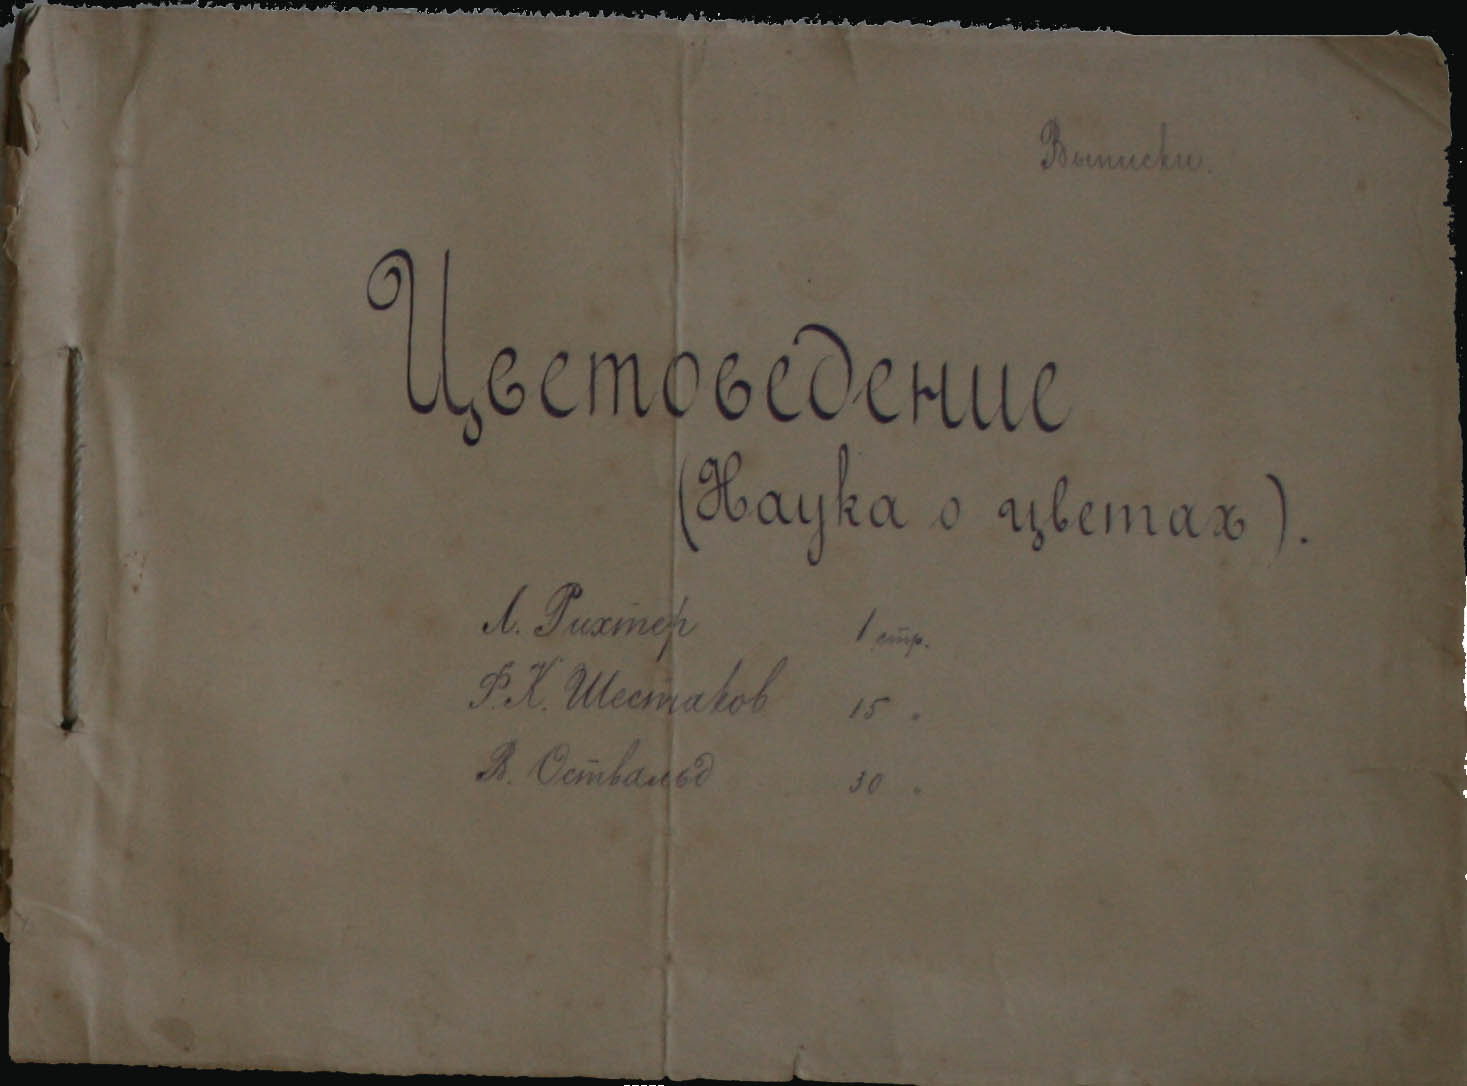 Выписки.
Цветоведение
(Наука о цветах).
Л. Рихтер 1 стр.
Ф.К. Шестаков 15 "
В. Оствальд 30 "